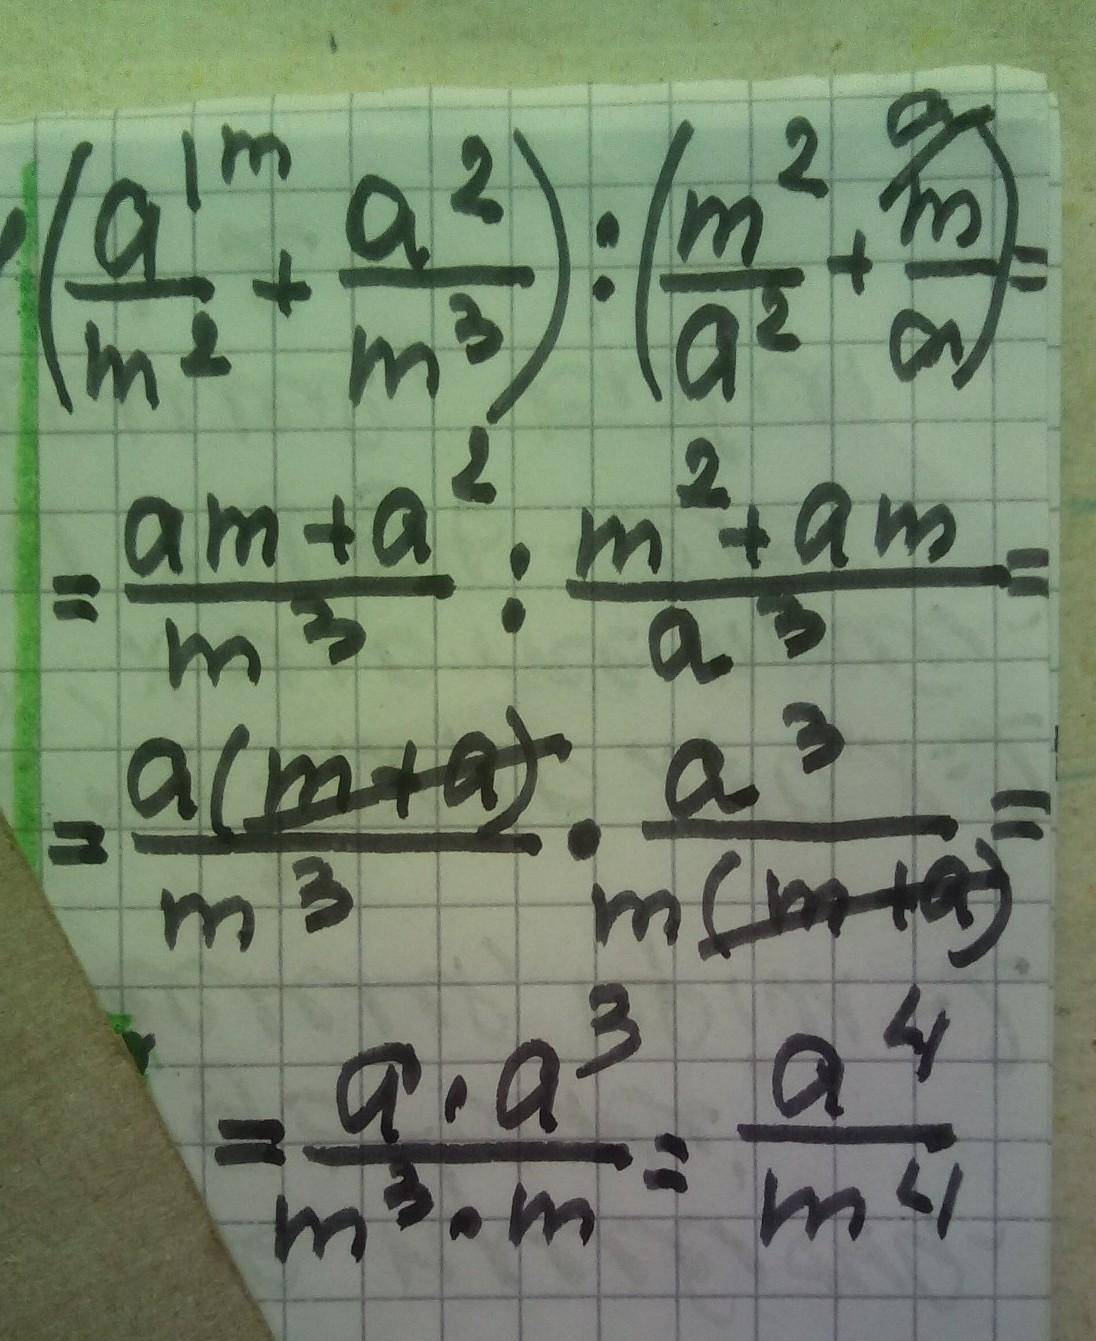 (a/m² ⁽ᵐ + a²/m³) : (m²/a² + m/a ⁽ᵃ) =
= (am + a²)/m³ : (m² + am)/a³ =
= a(m+a)/m³ · a³/m(m+a) =
= a · a³/m³ · m = a⁴/m⁴